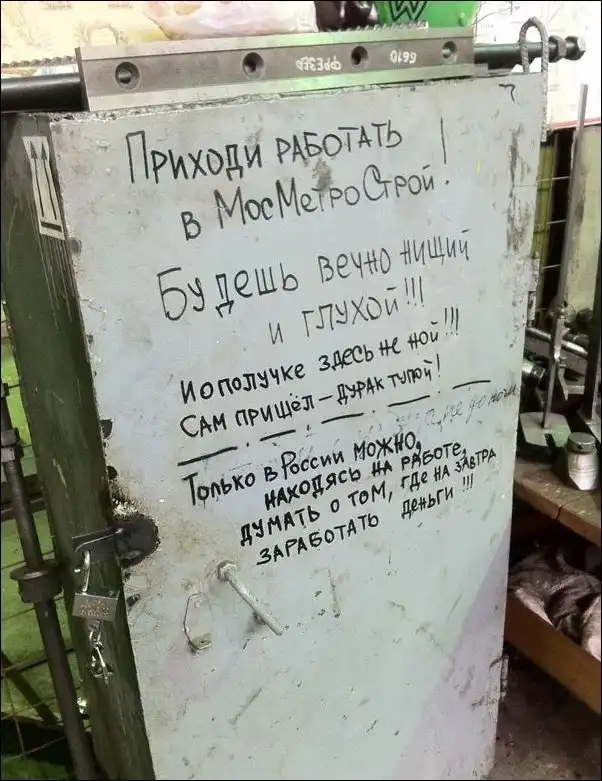 6610 ФРЕЗЕР
Приходи работать
в МосМетроСтрой!
Будешь вечно нищий
и глухой!!!
И о получке здесь не ной!!!
Сам пришёл - дурак тупой!
Только в России можно,
находясь на работе,
думать о том, где на завтра
заработать деньги!!!